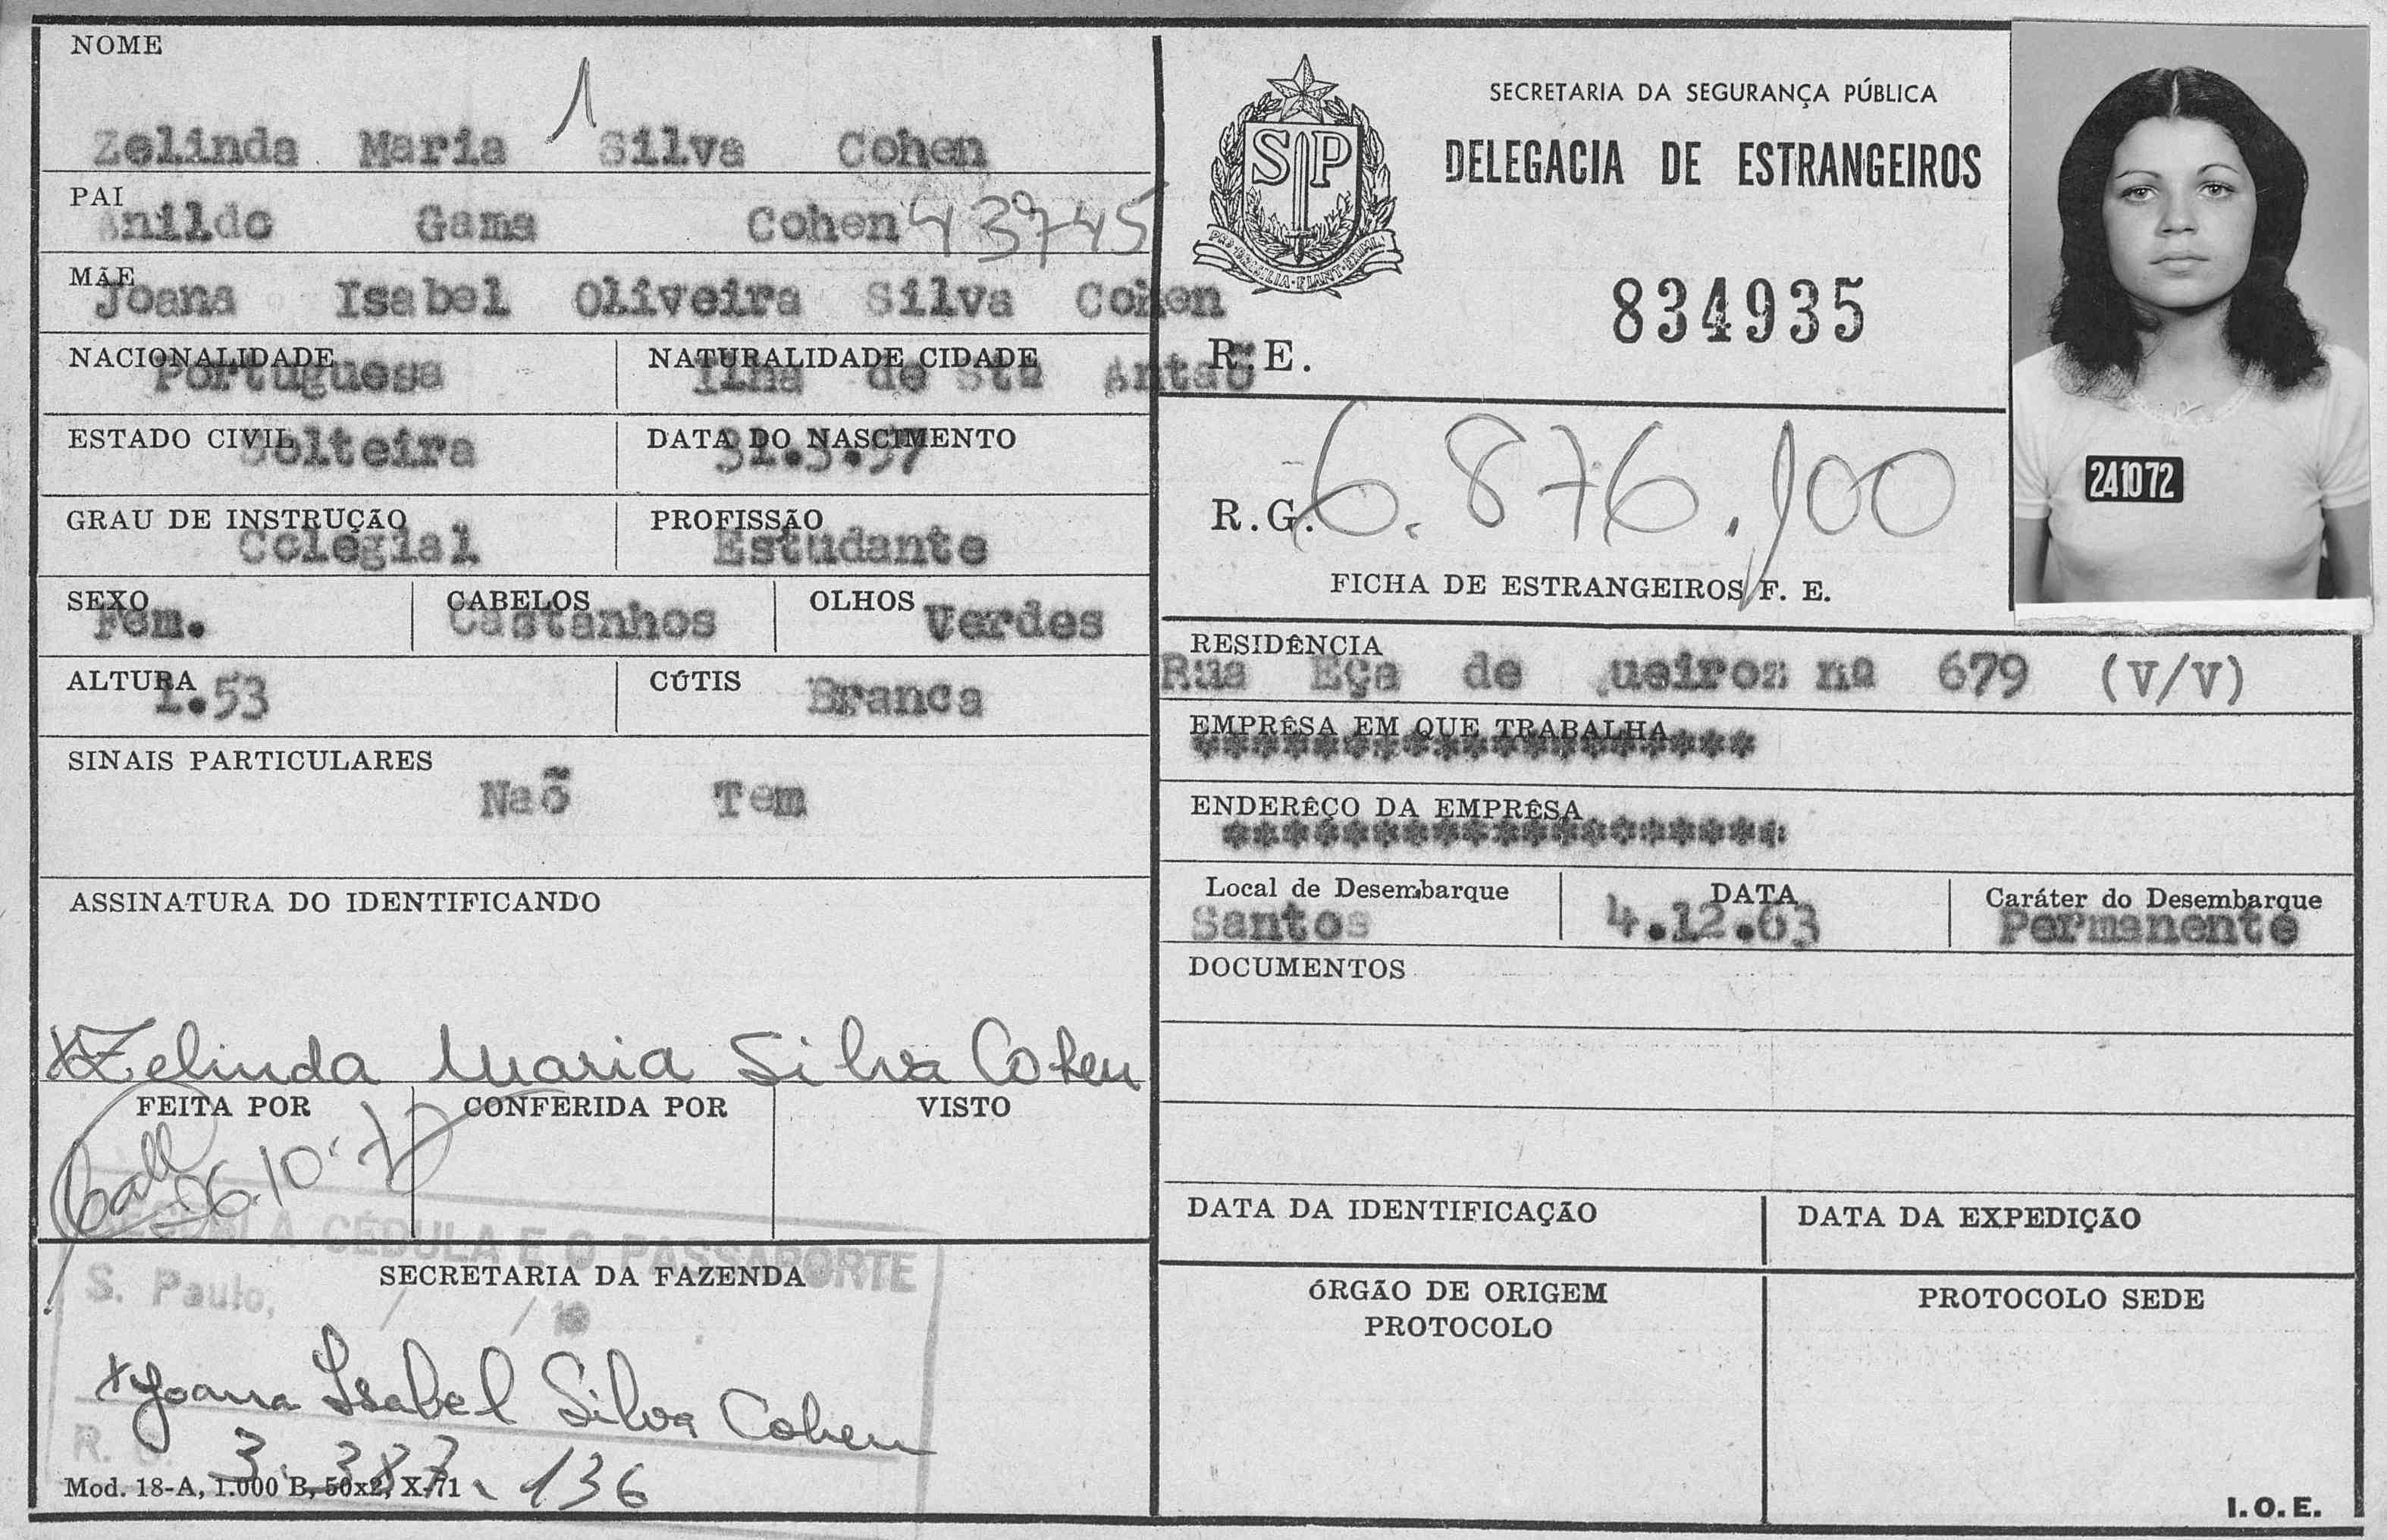 NOME
1
Zelinda Maria Silva Cohen
PAI
Anildo Gama Cohen 43745
MÃE
Joana Isabel Oliveira Silva Cohen
NACIONALIDADE
Portuguesa
NATURALIDADE CIDADE
Ilha de Stª Antaõ
ESTADO CIVIL
Solteira
DATA DO NASCIMENTO
31.3.57
GRAU DE INSTRUÇÃO
Colegial
PROFISSÃO
Estudante
SEXO
Fem.
CABELOS
Castanhos
OLHOS
Verdes
ALTURA
1.53
CÚTIS
Branca
SINAIS PARTICULARES
Naõ Tem
ASSINATURA DO IDENTIFICANDO
Zelinda Maria Silva Cohen
FEITA POR
CONFERIDA POR
VISTO
26.10.72
A CÉDULA E O PASSAPORTE
S. Paulo, / / 19
SECRETARIA DA FAZENDA
Joana Isabel Silva Cohen
R. G. 3.387.136
Mod. 18-A, 1.000 B, 50x2, X-71
SP
PRO·BRASILIA·FIANT·EXIMIA
SECRETARIA DA SEGURANÇA PÚBLICA
DELEGACIA DE ESTRANGEIROS
834935
R.E.
R.G. 6.876.100
FICHA DE ESTRANGEIROS F. E.
241072
RESIDÊNCIA
Rua Eça de ueiroz nº 679 (V/V)
EMPRÊSA EM QUE TRABALHA
*******************
ENDERÊÇO DA EMPRÊSA
*******************
Local de Desembarque
Santos
DATA
4.12.63
Caráter do Desembarque
Permanente
DOCUMENTOS
DATA DA IDENTIFICAÇÃO
DATA DA EXPEDIÇÃO
ÓRGÃO DE ORIGEM
PROTOCOLO
PROTOCOLO SEDE
I.O.E.